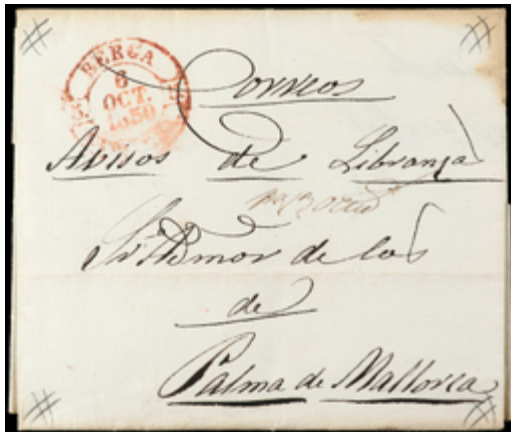 BERGA
6
OCT.
1850
Correos
Avisos de Libranza
Sr. Admor de los
de
Palma de Mallorca